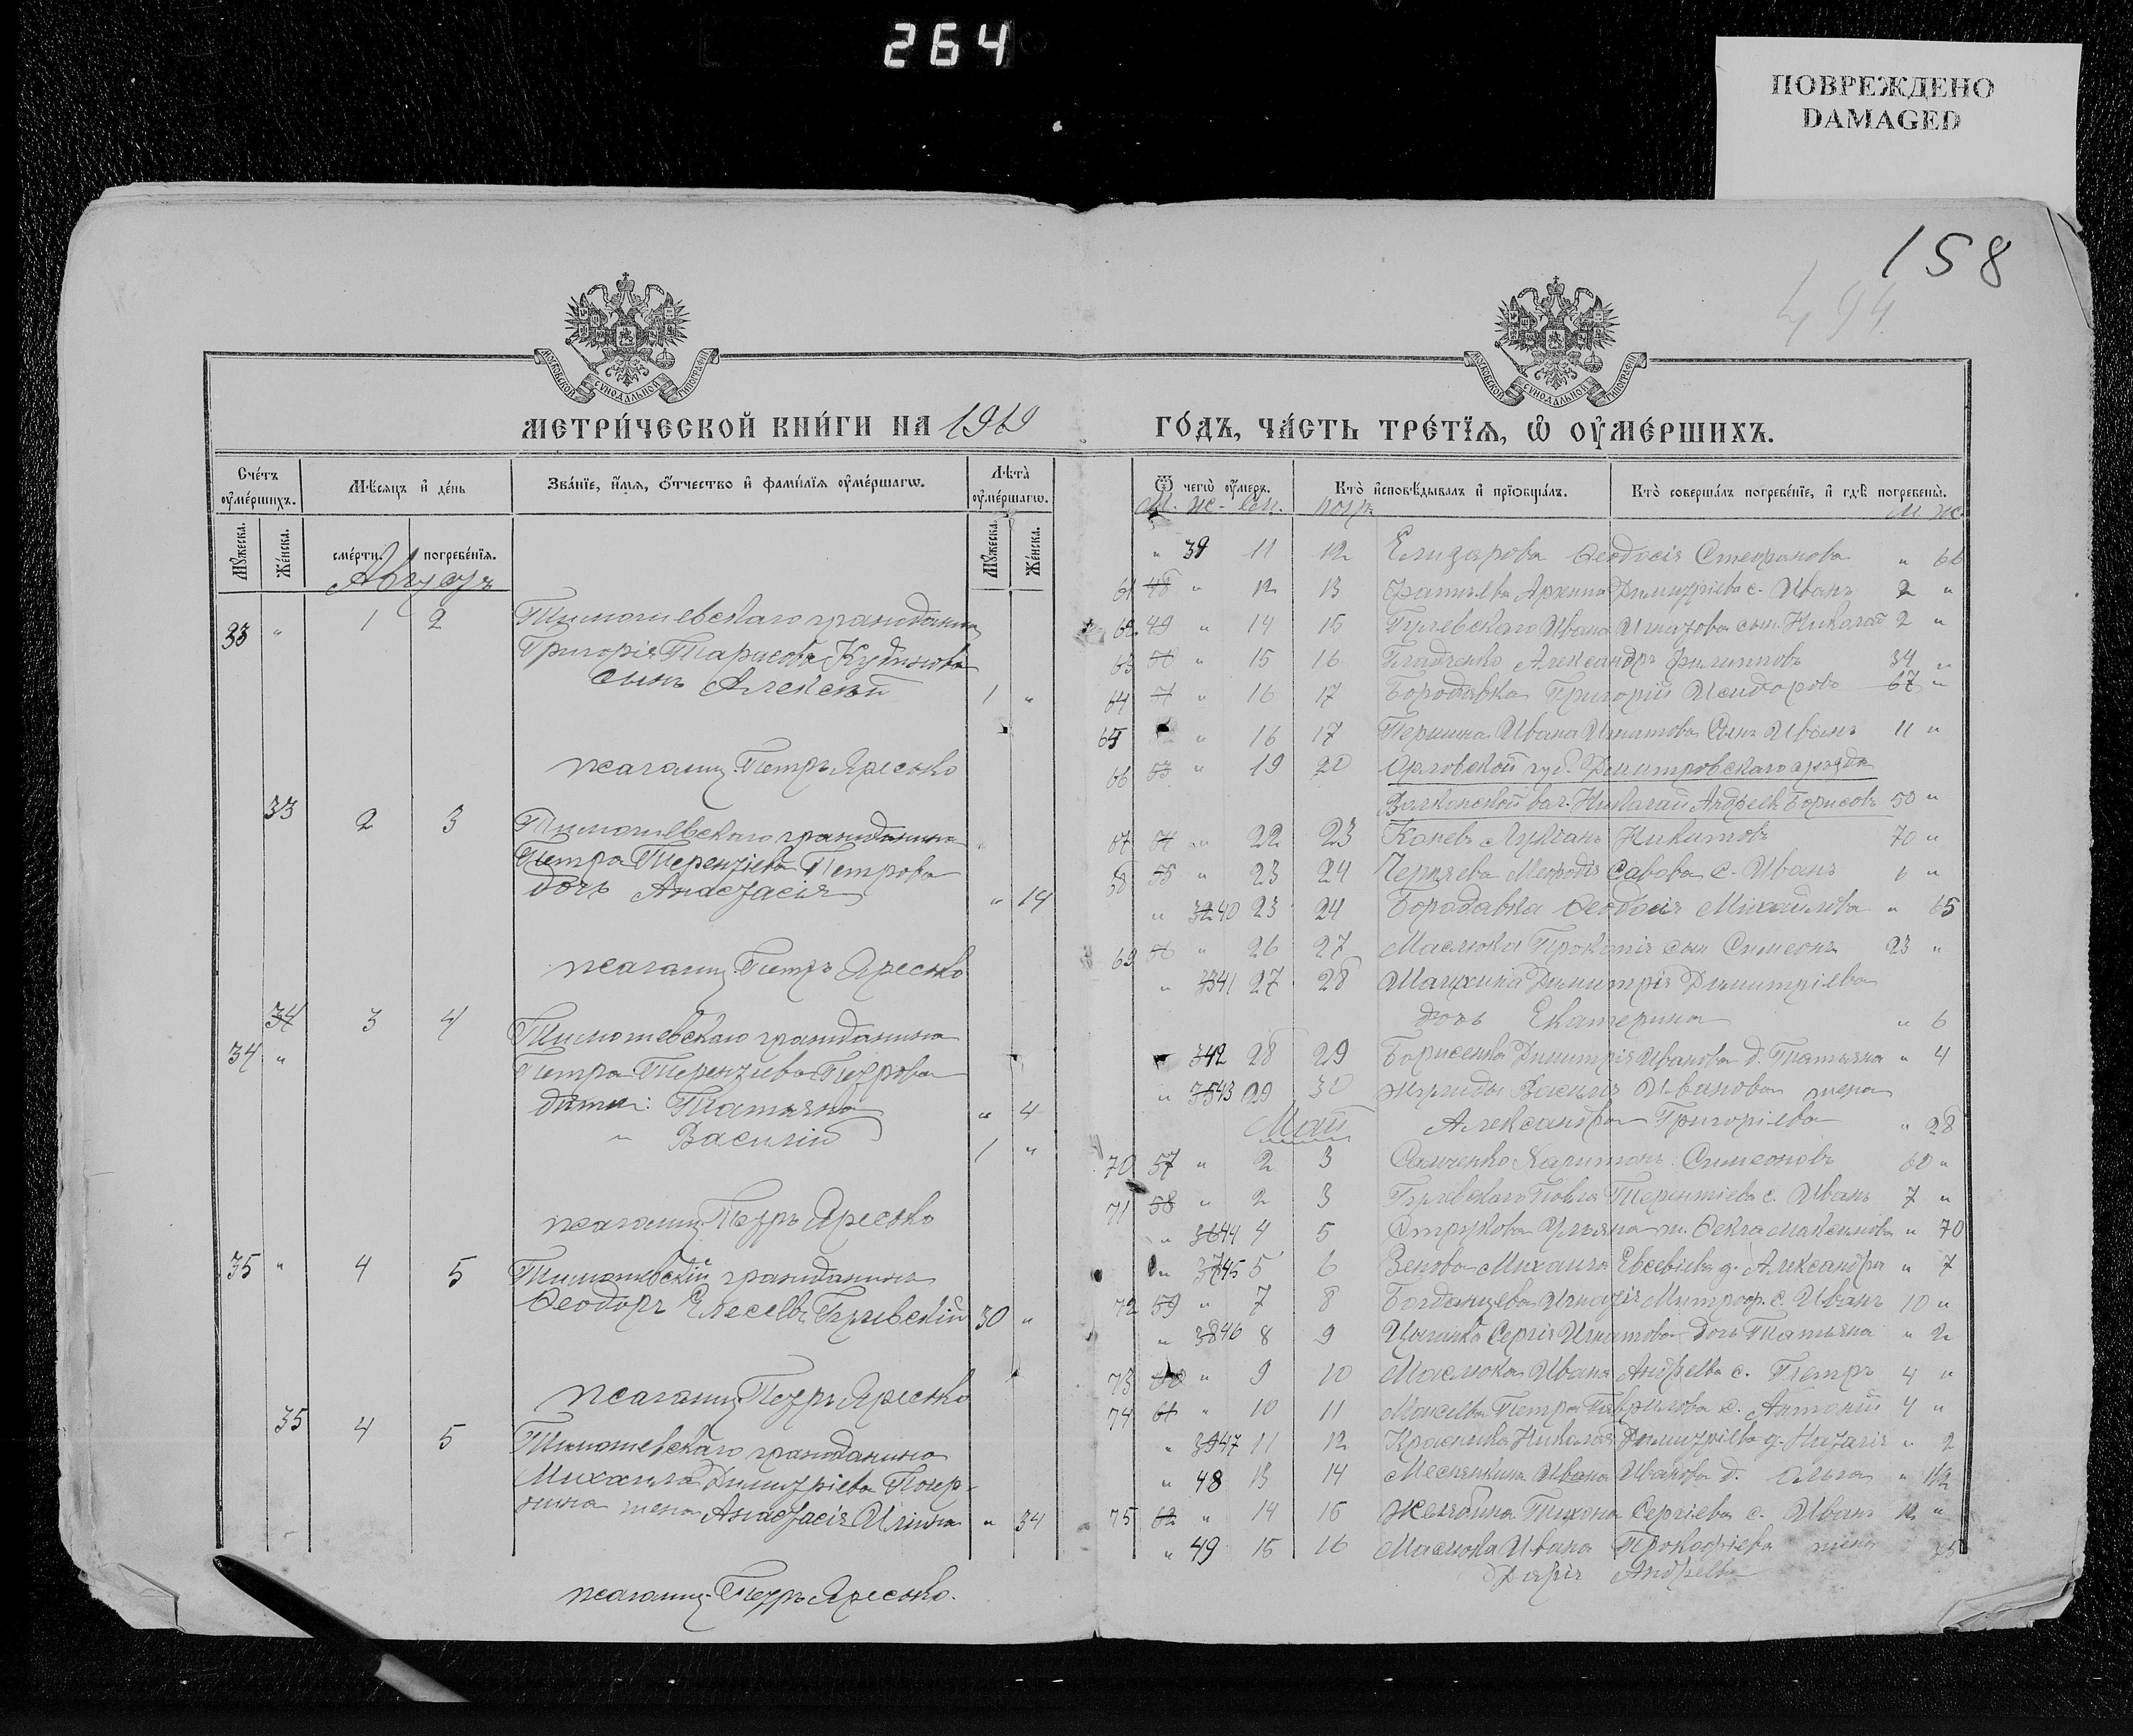 264
ПОВРЕЖДЕНО
DAMAGED
158
494
МОСКОВСКОЙ СѴНОДАЛЬНОЙ ТИПОГРАФІИ
МОСКОВСКОЙ СѴНОДАЛЬНОЙ ТИПОГРАФІИ
МЕТРИ́ЧЕСКОЙ КНИ́ГИ НА 1919
Сче́тъ оу҆ме́ршихъ.
Мѣсяцъ и҆ де́нь
Зва́нїе, и҆́мѧ, ѻ҆́тчество и҆ фами́лїѧ оу҆ме́ршагѡ.
Лѣта̀ оу҆ме́ршагѡ.
Мꙋ́жеска. Же́нска. сме́рти. погребе́нїѧ. Мꙋ́жеска. Же́нска.
Августъ
33 " 1 2 Тимошевскаго гражданина
Григорія Тарасова Кудинова
сынъ Алексѣй 1 "
псаломщ. Петръ Яресько
33 2 3 Тимошевскаго гражданина
Петра Терентіева Петрова
дочь Анастасія " 14
псаломщ. Петръ Яресько
34 3 4 Тимошевскаго гражданина
34 " Петра Терентіева Петрова
дѣти: Татьяна " 4
" Василій 1 "
псаломщ. Петръ Яресько
35 " 4 5 Тимошевскій гражданинъ
Ѳеодоръ Елисеевъ Гулевскій 30 "
псаломщ. Петръ Яресько
35 4 5 Тимошевскаго гражданина
Михаила Димитріева
жена Анастасія " 34
псаломщ. Петръ Яресько.
ГО́ДЪ, ЧА́СТЬ ТРЕ́ТЇѦ, Ѡ҆ ОУ҆МЕ́РШИХЪ.
Ѿ чегѡ̀ оу҆́меръ.
Кто̀ и҆сповѣ́дывалъ и҆ прїѡбща́лъ.
Кто̀ соверша́лъ погребе́нїе, и҆ гдѣ̀ погребены̀.
м. ж. м. ж.
" 39 11 12 Елизарова Ѳеодосія Стефанова " 66
61 48 " 12 13 Димитріева с. Иванъ 2 "
62 49 " 14 15 Гулевскаго Ивана Игнатова сын. Николай 2 "
63 50 " 15 16 Александръ Филипповъ 34 "
64 51 " 16 17 Бородавка Григорій Исидоровъ 67 "
65 " 16 17 Ивана Игнатова сынъ Иванъ 11 "
66 53 " 19 20 Орловской губ. Димитровскаго уѣзда
вол. Николай Андреевъ Борисовъ 50 "
67 54 " 22 23 Лукіанъ Никитовъ 70 "
68 55 " 23 24 Меѳодія Савова с. Иванъ "
" 3240 23 24 Бородавка Ѳеодосія Михайлова " 65
69 56 " 26 27 Маслюка Прокопія сын Симеонъ 23 "
" 3341 27 28 Димитрія Димитріева
дочь Екатерина " 6
" 342 28 29 Борисенка Димитрія Иванова д. Татьяна " 4
" 3543 29 30 Василія Иванова жена
Май Александра Григоріева " 28
70 57 " 2 3 Харитонъ Симеоновъ 60 "
71 58 " 2 3 Гулевскаго Павла Терентіева с. Иванъ 7 "
" 3644 4 5 Ѳекла Максимова " 70
" 3745 5 6 Зенова Михаила Евсевіева д. Александра " 7
72 59 " 7 8 Богданцева Игнатія Митроф. с. Иванъ 10 "
" 3846 8 9 Цыганка Сергія Игнатова дочь Татьяна " 2
73 60 " 9 10 Маслюка Ивана Андреева с. Петръ 4 "
74 61 " 10 11 Моисеева Петра Гаврилова с. Антоній 4 "
" 3947 11 12 Красника Николая Димитріева д. " 2
" 48 13 14 Ивана Иванова д. Ольга " 1/2
75 62 " 14 15 Желябина Тихона Сергіева с. Иванъ 12 "
" 49 15 16 Маслюка Ивана Прокофіева жена
Дарія Андреева